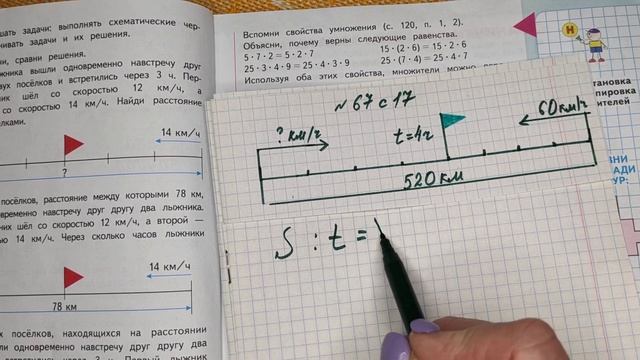 шать задачи: выполнять схематические чер-
нивать задачи и их решения.
ни, сравни решения.
лыжника вышли одновременно навстречу друг
вух посёлков и встретились через 3 ч. Пер-
ник шёл со скоростью 12 км/ч, а
со скоростью 14 км/ч. Найди расстояние
елками.
14 км/ч
?
посёлков, расстояние между которыми 78 км,
овременно навстречу друг другу два лыжника.
них шёл со скоростью 12 км/ч, а второй —
тью 14 км/ч. Через сколько часов лыжники
14 км/ч
78 км
х посёлков, находящихся на расстоянии
Вспомни свойства умножения (с. 120, п. 1, 2).
Объясни, почему верны следующие равенства.
5 · 7 · 2 = 5 · 2 · 7 15 · (2 · 6) = 15 · 2 · 6
25 · 3 · 4 · 9 = 25 · 4 · 3 · 9 25 · (7 · 4) = 25 · 4 · 7
Используя оба этих свойства, множители можно
№ 67 с 17
? км/ч
t=4ч
60км/ч
520 км
S : t =
Н
становка
пировка
ителей